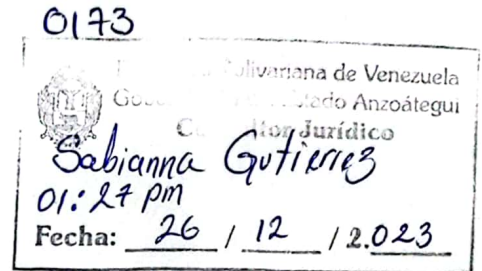 0173
de Venezuela
Anzoátegui
Jurídico
Sabianna Gutierrez
01:27 pm
Fecha: 26 / 12 / 2.023